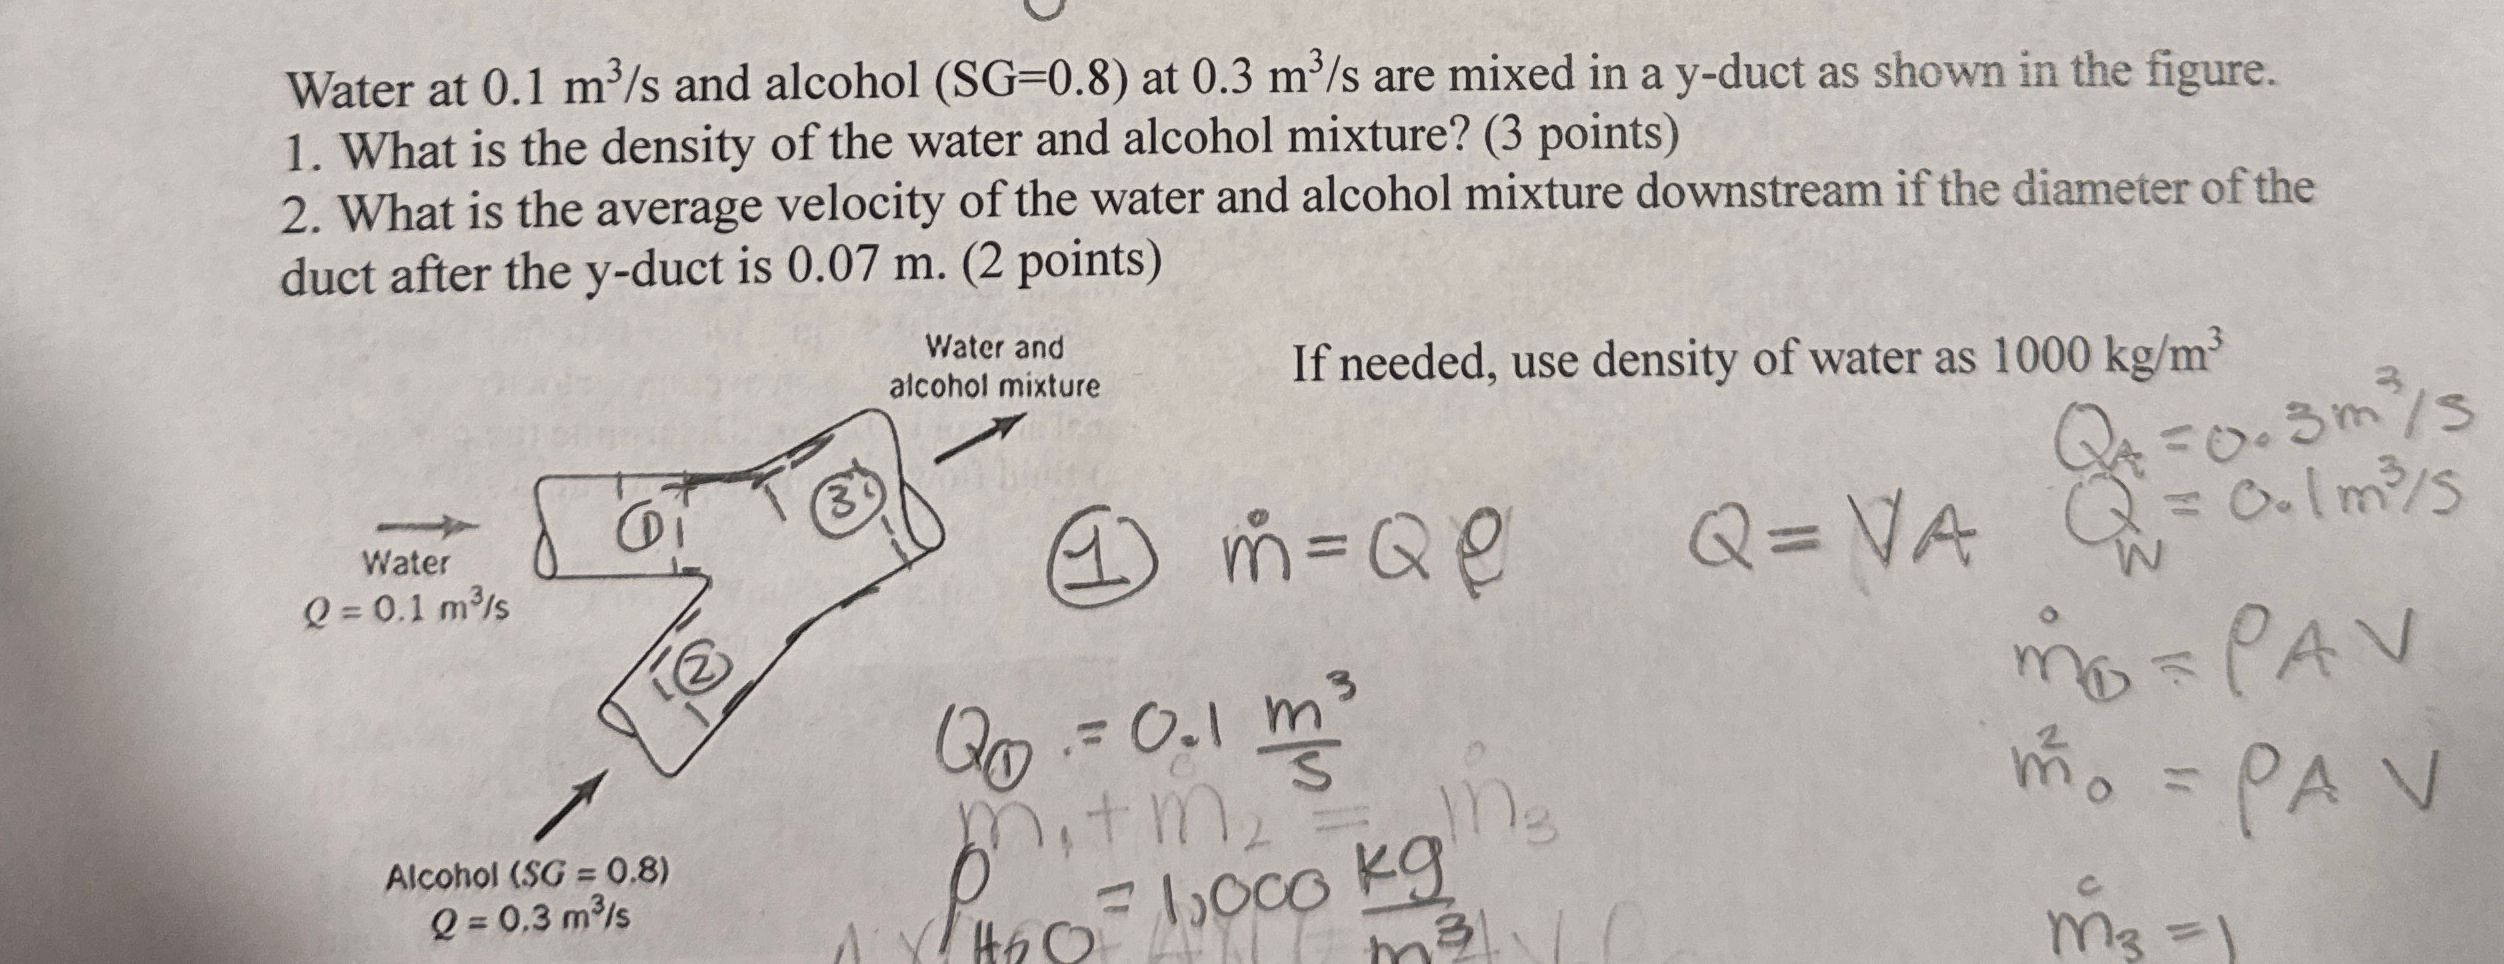 Water at 0.1 m³/s and alcohol (SG=0.8) at 0.3 m³/s are mixed in a y-duct as shown in the figure.
1. What is the density of the water and alcohol mixture? (3 points)
2. What is the average velocity of the water and alcohol mixture downstream if the diameter of the
duct after the y-duct is 0.07 m. (2 points)
Water and
alcohol mixture
If needed, use density of water as 1000 kg/m³
Q_A = 0.3 m³/s
Q_W = 0.1 m³/s
① ③
Water
Q = 0.1 m³/s
① ṁ = Qρ
Q = VA
②
ṁ_① = ρAV
Q_① = 0.1 m³/s
ṁ₁ + ṁ₂ = ṁ₃
ρ_H₂O = 1,000 kg/m³
Alcohol (SG = 0.8)
Q = 0.3 m³/s
= ρAV
ṁ₃ =